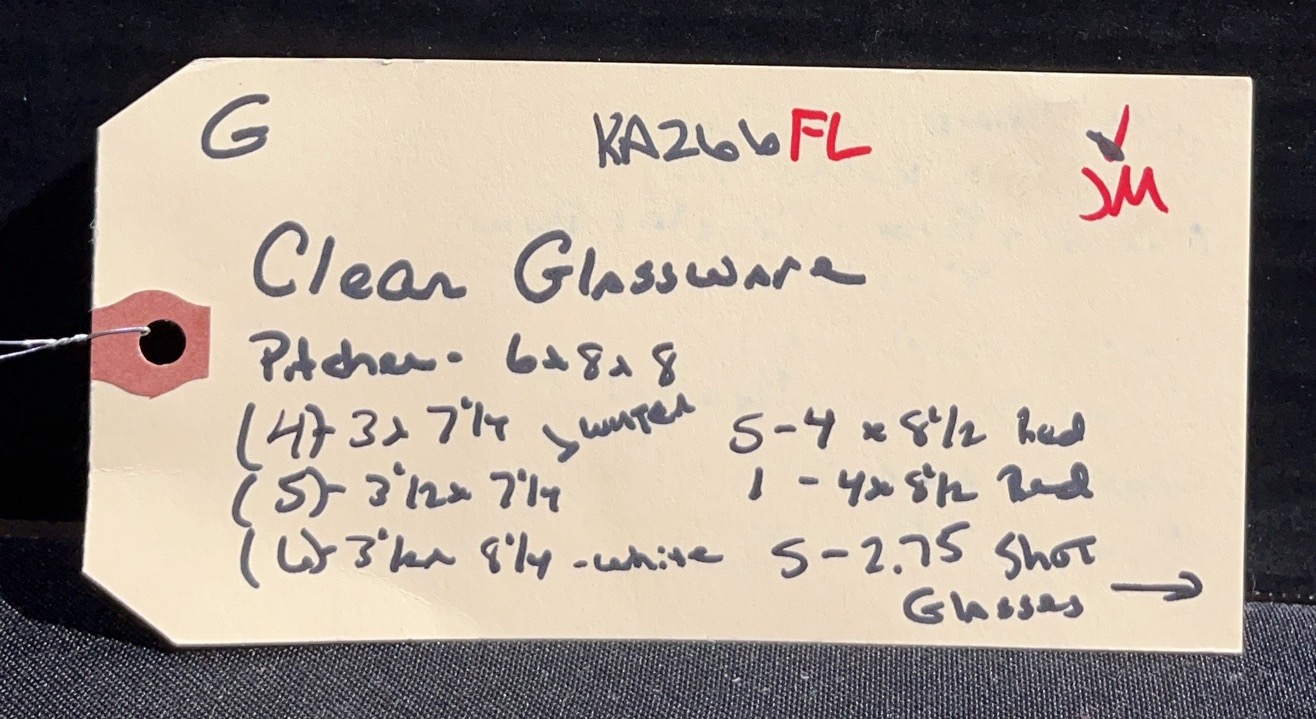 G KA266FL JM
Clear Glassware
Pitcher - 6x8x8
(4)- 3x 7 1/4 water
(5)- 3 1/2 x 7 1/4
(6)- 3 1/2 x 8 1/4 - white
5-4 x 8 1/2 Red
1 - 4x 8 1/2 Red
5-2.75 Shot
Glasses →